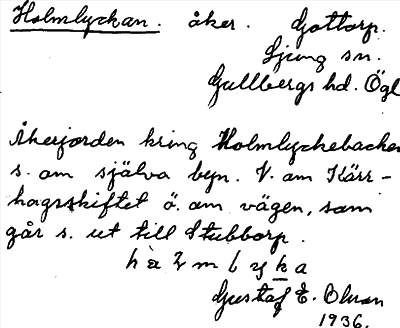 Holmlyckan. åker. Gottorp.
Ljung sn.
Gullbergs hd. Ögl
Åkerjorden kring Holmlyckebacken
s. om själva byn. V. om Kärr-
hagsskiftet ö. om vägen, som
går s. ut till Stubborp.
Gustaf E. Olsson
1936.